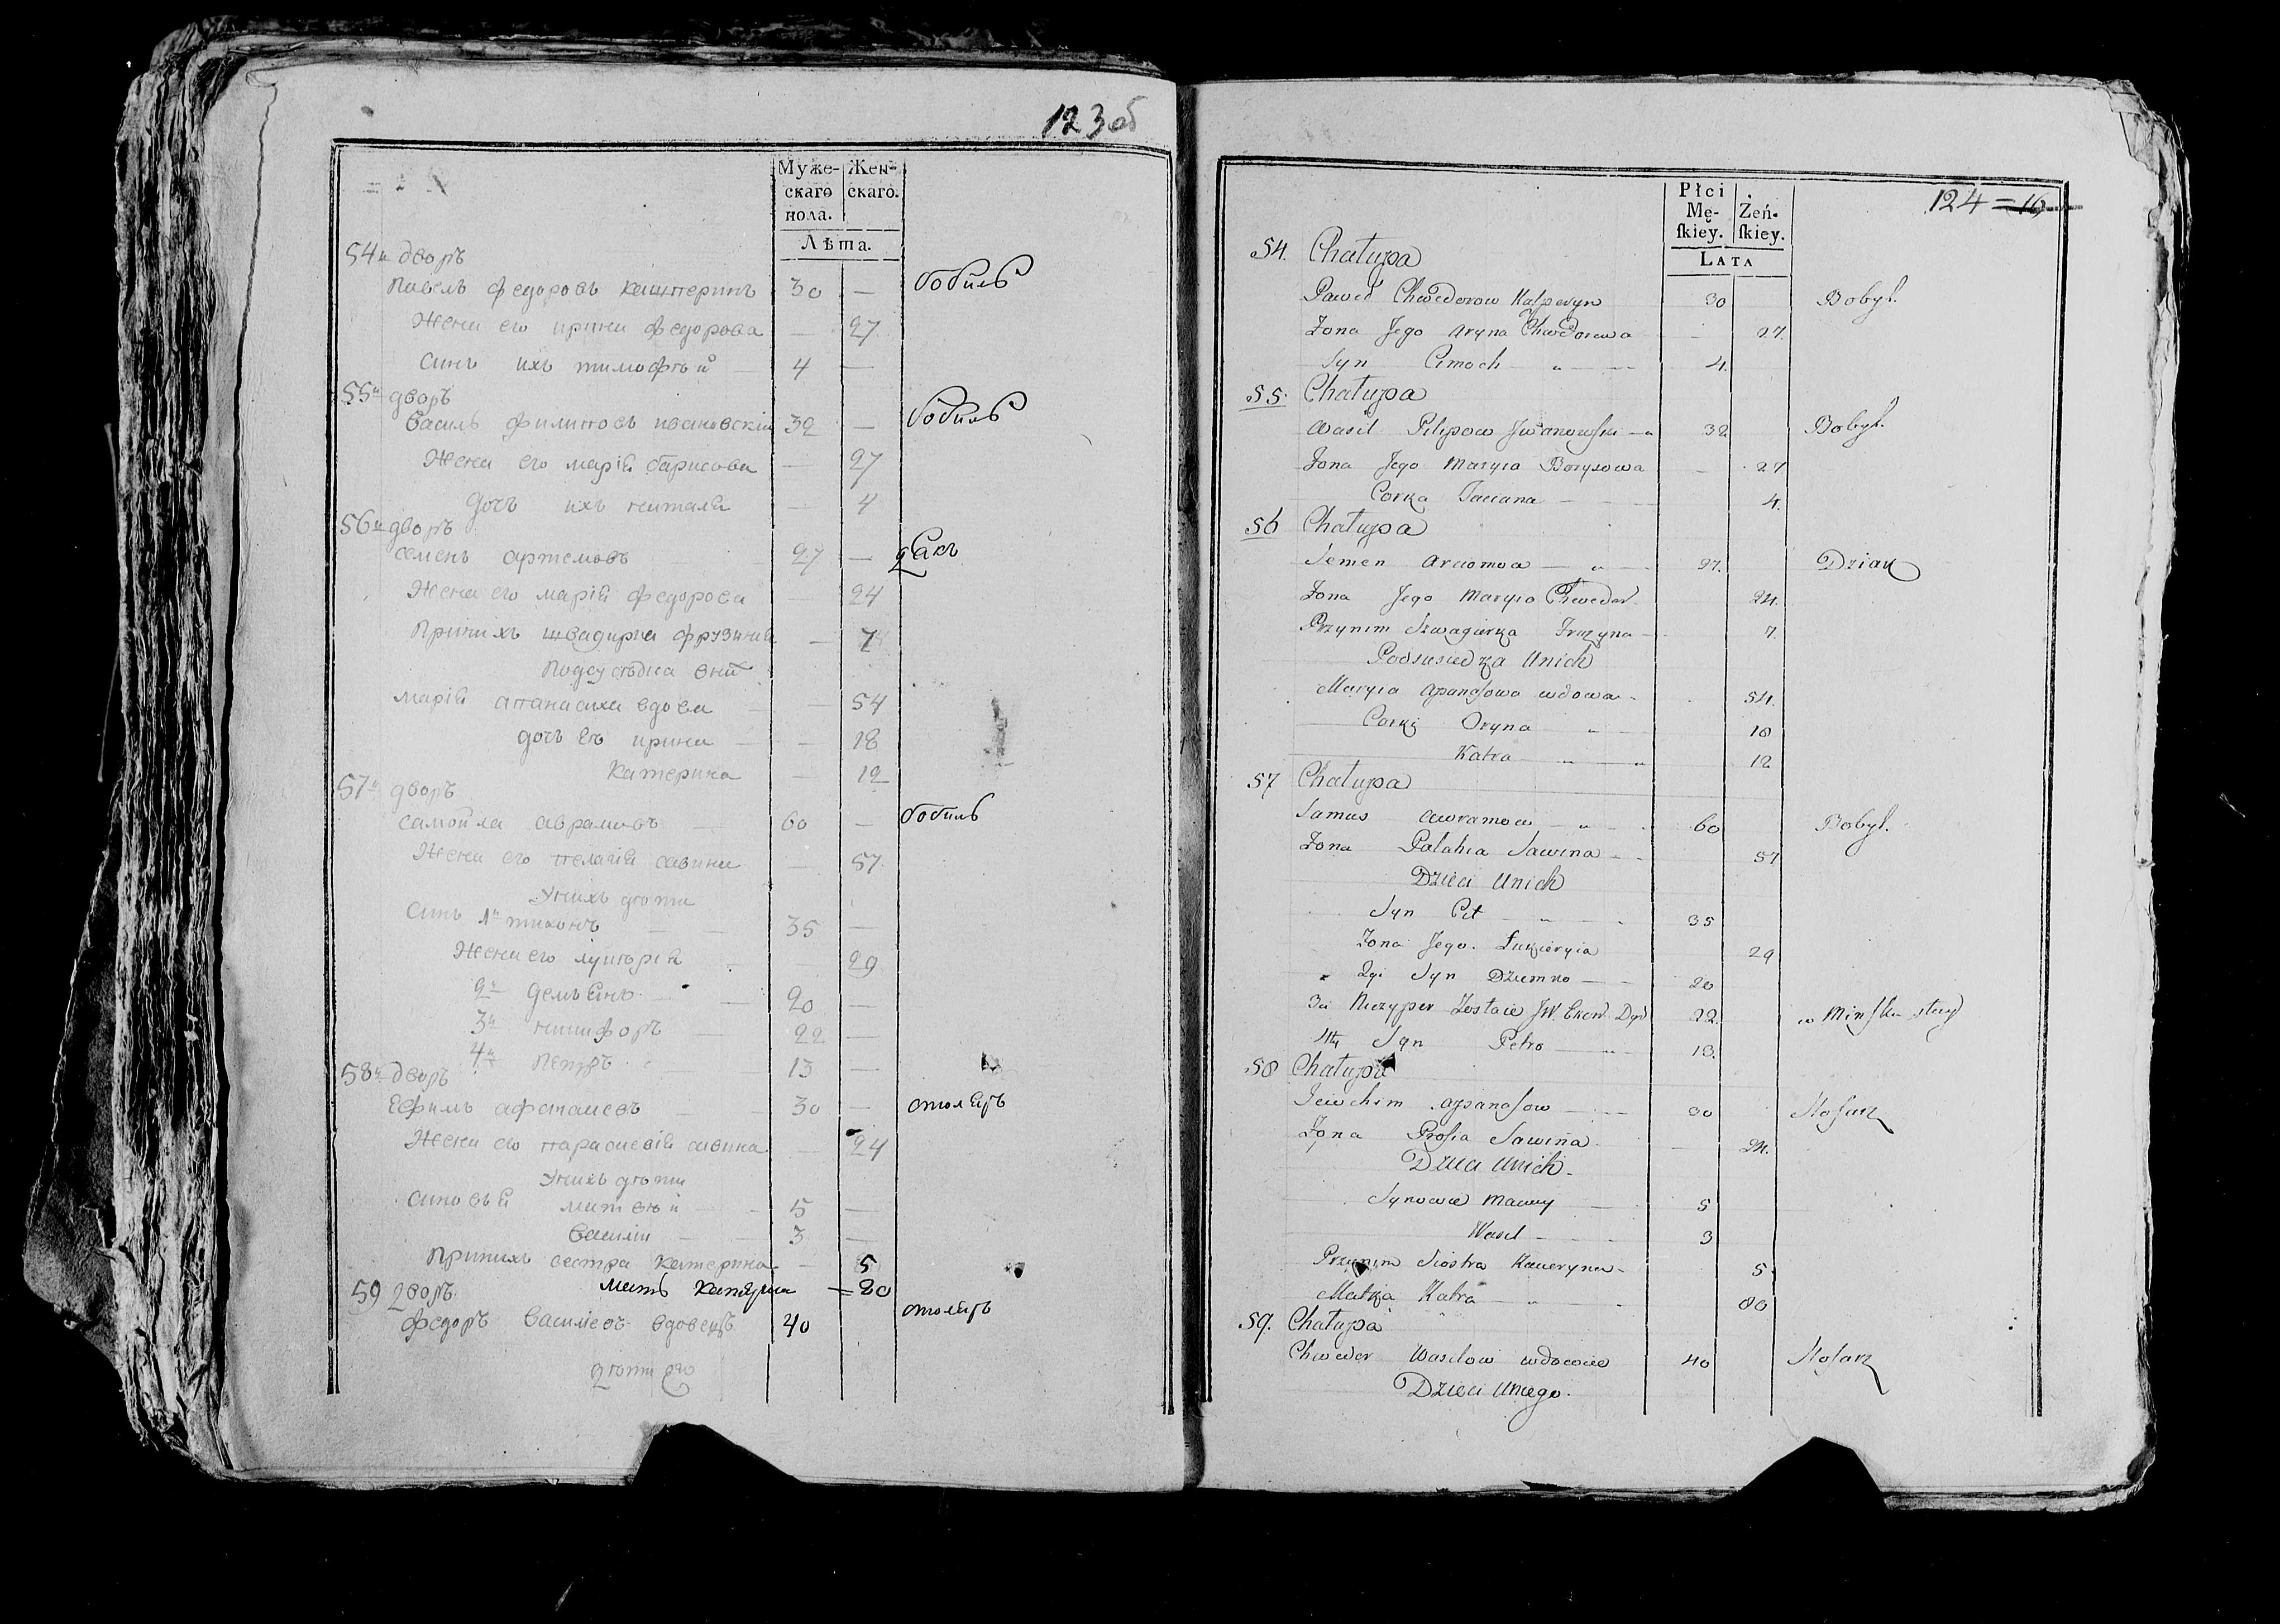 123об
Муже-скаго пола. Жен-скаго.
Лѣта.
54й дворъ
Павелъ федоровъ каштеринъ 30 — бобиль
Жена его ирина федорова — 27
Синъ ихъ тимофѣй — 4 —
55й дворъ
Василь филиповъ ивановскій 32 — бобиль
Жена его марія барисова — 27
дочь ихъ наталя — 4
56й дворъ
семенъ артемовъ 27 — дякъ
Жена его марія федорова — 24
При нихъ швагирка фрузиния — 7
Подсусѣдка
марія апанасиха вдова — 54
дочь ея ирина — 18
Катерина — 12
57й дворъ
самойла аврамовъ — 60 — бобиль
Жена его пелагія савина — 57
У нихъ дѣти
Синъ 1й тихонъ — 35 —
Жена его лукѣрія — 29
2й демьянъ — 20 —
3й никифоръ — 22 —
4й Петръ — 13 —
58й дворъ
Ефимъ афанасевъ — 30 — столяръ
Жена его парасковія савина — 24
У нихъ дѣти
синовья матвѣй — 5 —
василій — 3 —
При нихъ сестра катерина — 5
мать катерина = 80
59 дворъ
федоръ Василевъ вдовецъ 40 столяръ
дѣти его
124 = 16
Płci Mę-ſkiey. Żeń-ſkiey.
LATA
54. Chałupa
Paweł Chwedorow Kasperyn 30 Bobyl.
Zona Jego Aryna Chwedorowa — 27.
Syn Cimoch — „ — 4.
55. Chałupa
Wasil Pilipow Jwanowski — 32 Bobyl.
Zona Jego Maryia Borysowa — 27
Corka Taciana — 4.
56 Chałupa
Semen Arciomow — „ — 27. Dziak
Zona Jego Maryia Chwedor. 24.
Przynim Szwagierka Fruzyna — 7.
Podsusiedka Unich
Maryia Apanasowa wdowa — 54.
Corki Oryna „ — 18
Katra — „ — 12
57 Chałupa
Samus Awramow — „ — 60 Bobyl.
Zona Palahia Sawina — 57
Dzieci Unich
Syn Cit — „ — 35
Zona Jego. Łukieryia 29
2gi Syn Dziemko — 20
3ci Niczyper Zostaie JW. Ekon. 22. w Minsku
4ty Syn Petro — „ 13.
58 Chałupa
Jewchim Apanasow — 30 Stolarz
Zona Prosia Sawina — 24.
Dzieci Unich —
Synowie Maciey — 5
Wasil — 3
Przynim Siostra Kateryna — 5
Matka Katra — „ 80
59. Chałupa
Chweder Wasilow wdowiec 40 Stolarz
Dzieci Uniego.